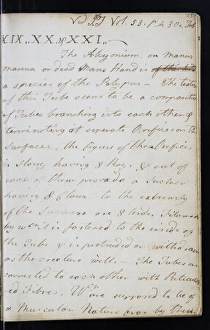 Vol. 53. P.
XIX, XX, XXI.
The Alcyonium, or Manus
manna or dead Mans Hand is
a species of the Polypus — The body
of this Tube seems to be a composition
of Tubes branching into each other &
terminating at separate Orifices on its
Surfaces, the figure of the Orifice
is Starry having 8 Rays, & out of
each of them proceeds a Sucker
having 8 Claws to the extremity
of the Suckers are 8 white Filaments
by wch. it is fastened to the inside of
the Tube & is protruded or withdrawn
as the creature will. — The Tubes are
connected to each other with Reticula
ted Fibres. Wch. are supposed to be of
a Muscular Nature